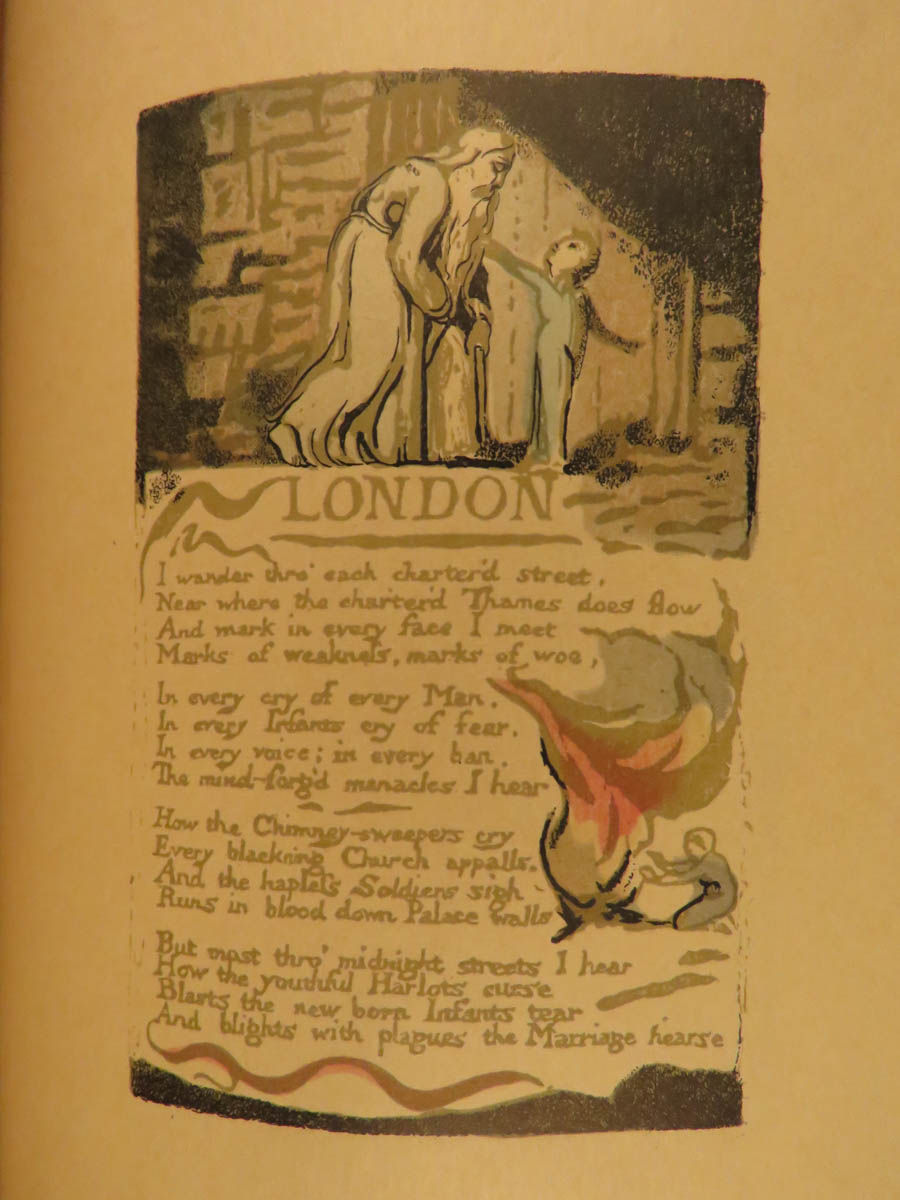 LONDON
I wander thro' each charter'd street,
Near where the charter'd Thames does flow
And mark in every face I meet
Marks of weakness, marks of woe,
In every cry of every Man,
In every Infants cry of fear,
In every voice; in every ban,
The mind-forg'd manacles I hear
How the Chimney-sweepers cry
Every blackning Church appalls,
And the hapless Soldiers sigh
Runs in blood down Palace walls
But most thro' midnight streets I hear
How the youthful Harlots curse
Blasts the new born Infants tear
And blights with plagues the Marriage hearse